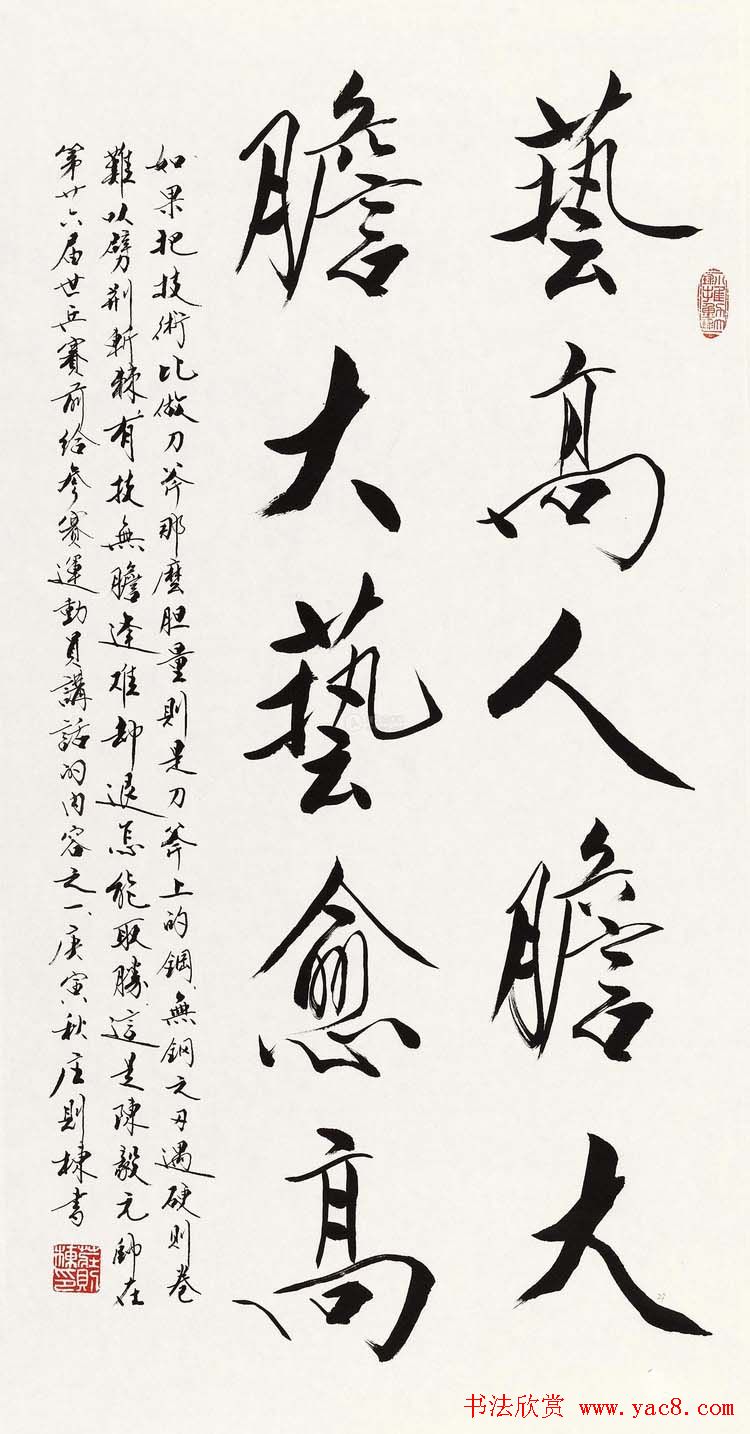 藝高人膽大
膽大藝愈高
如果把技術比做刀斧那麼胆量則是刀斧上的鋼無鋼之刃遇硬則卷
難以劈荆斬棘有技無膽逢难却退怎能取勝這是陳毅元帥在
第廿六届世乒賽前給參赛運動員講話的内容之一庚寅秋庄則棟書
莊則棟印
书法欣赏 www.yac8.com